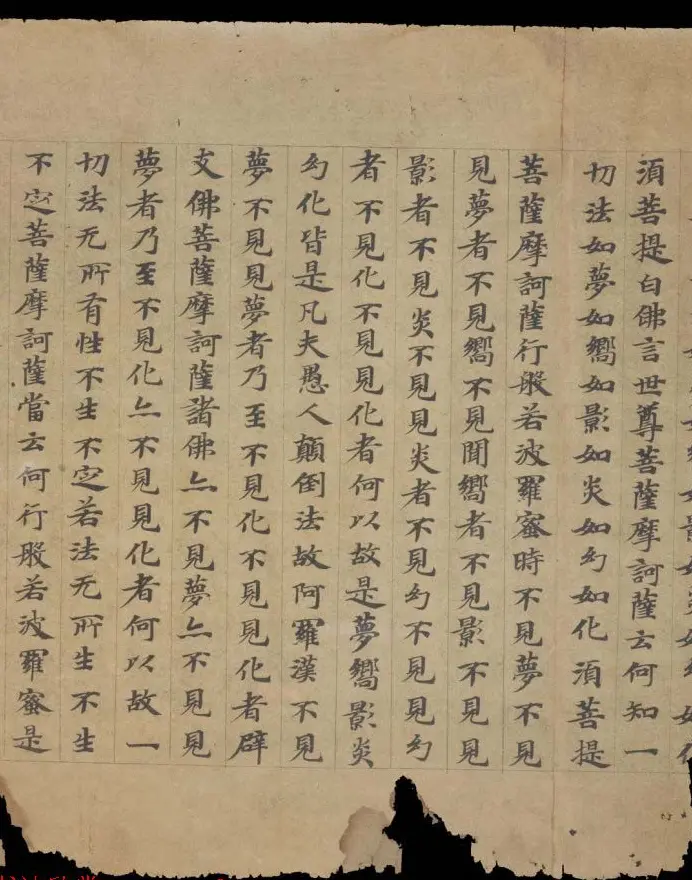 須菩提白佛言世尊菩薩摩訶薩云何知一
切法如夢如嚮如影如炎如幻如化須菩提
菩薩摩訶薩行般若波羅蜜時不見夢不見
見夢者不見嚮不見聞嚮者不見影不見見
影者不見炎不見見炎者不見幻不見見幻
者不見化不見見化者何以故是夢嚮影炎
幻化皆是凡夫愚人顛倒法故阿羅漢不見
夢不見見夢者乃至不見化不見見化者辟
支佛菩薩摩訶薩諸佛亦不見夢亦不見見
夢者乃至不見化亦不見見化者何以故一
切法无所有性不生不定若法无所生不生
不定菩薩摩訶薩當云何行般若波羅蜜是